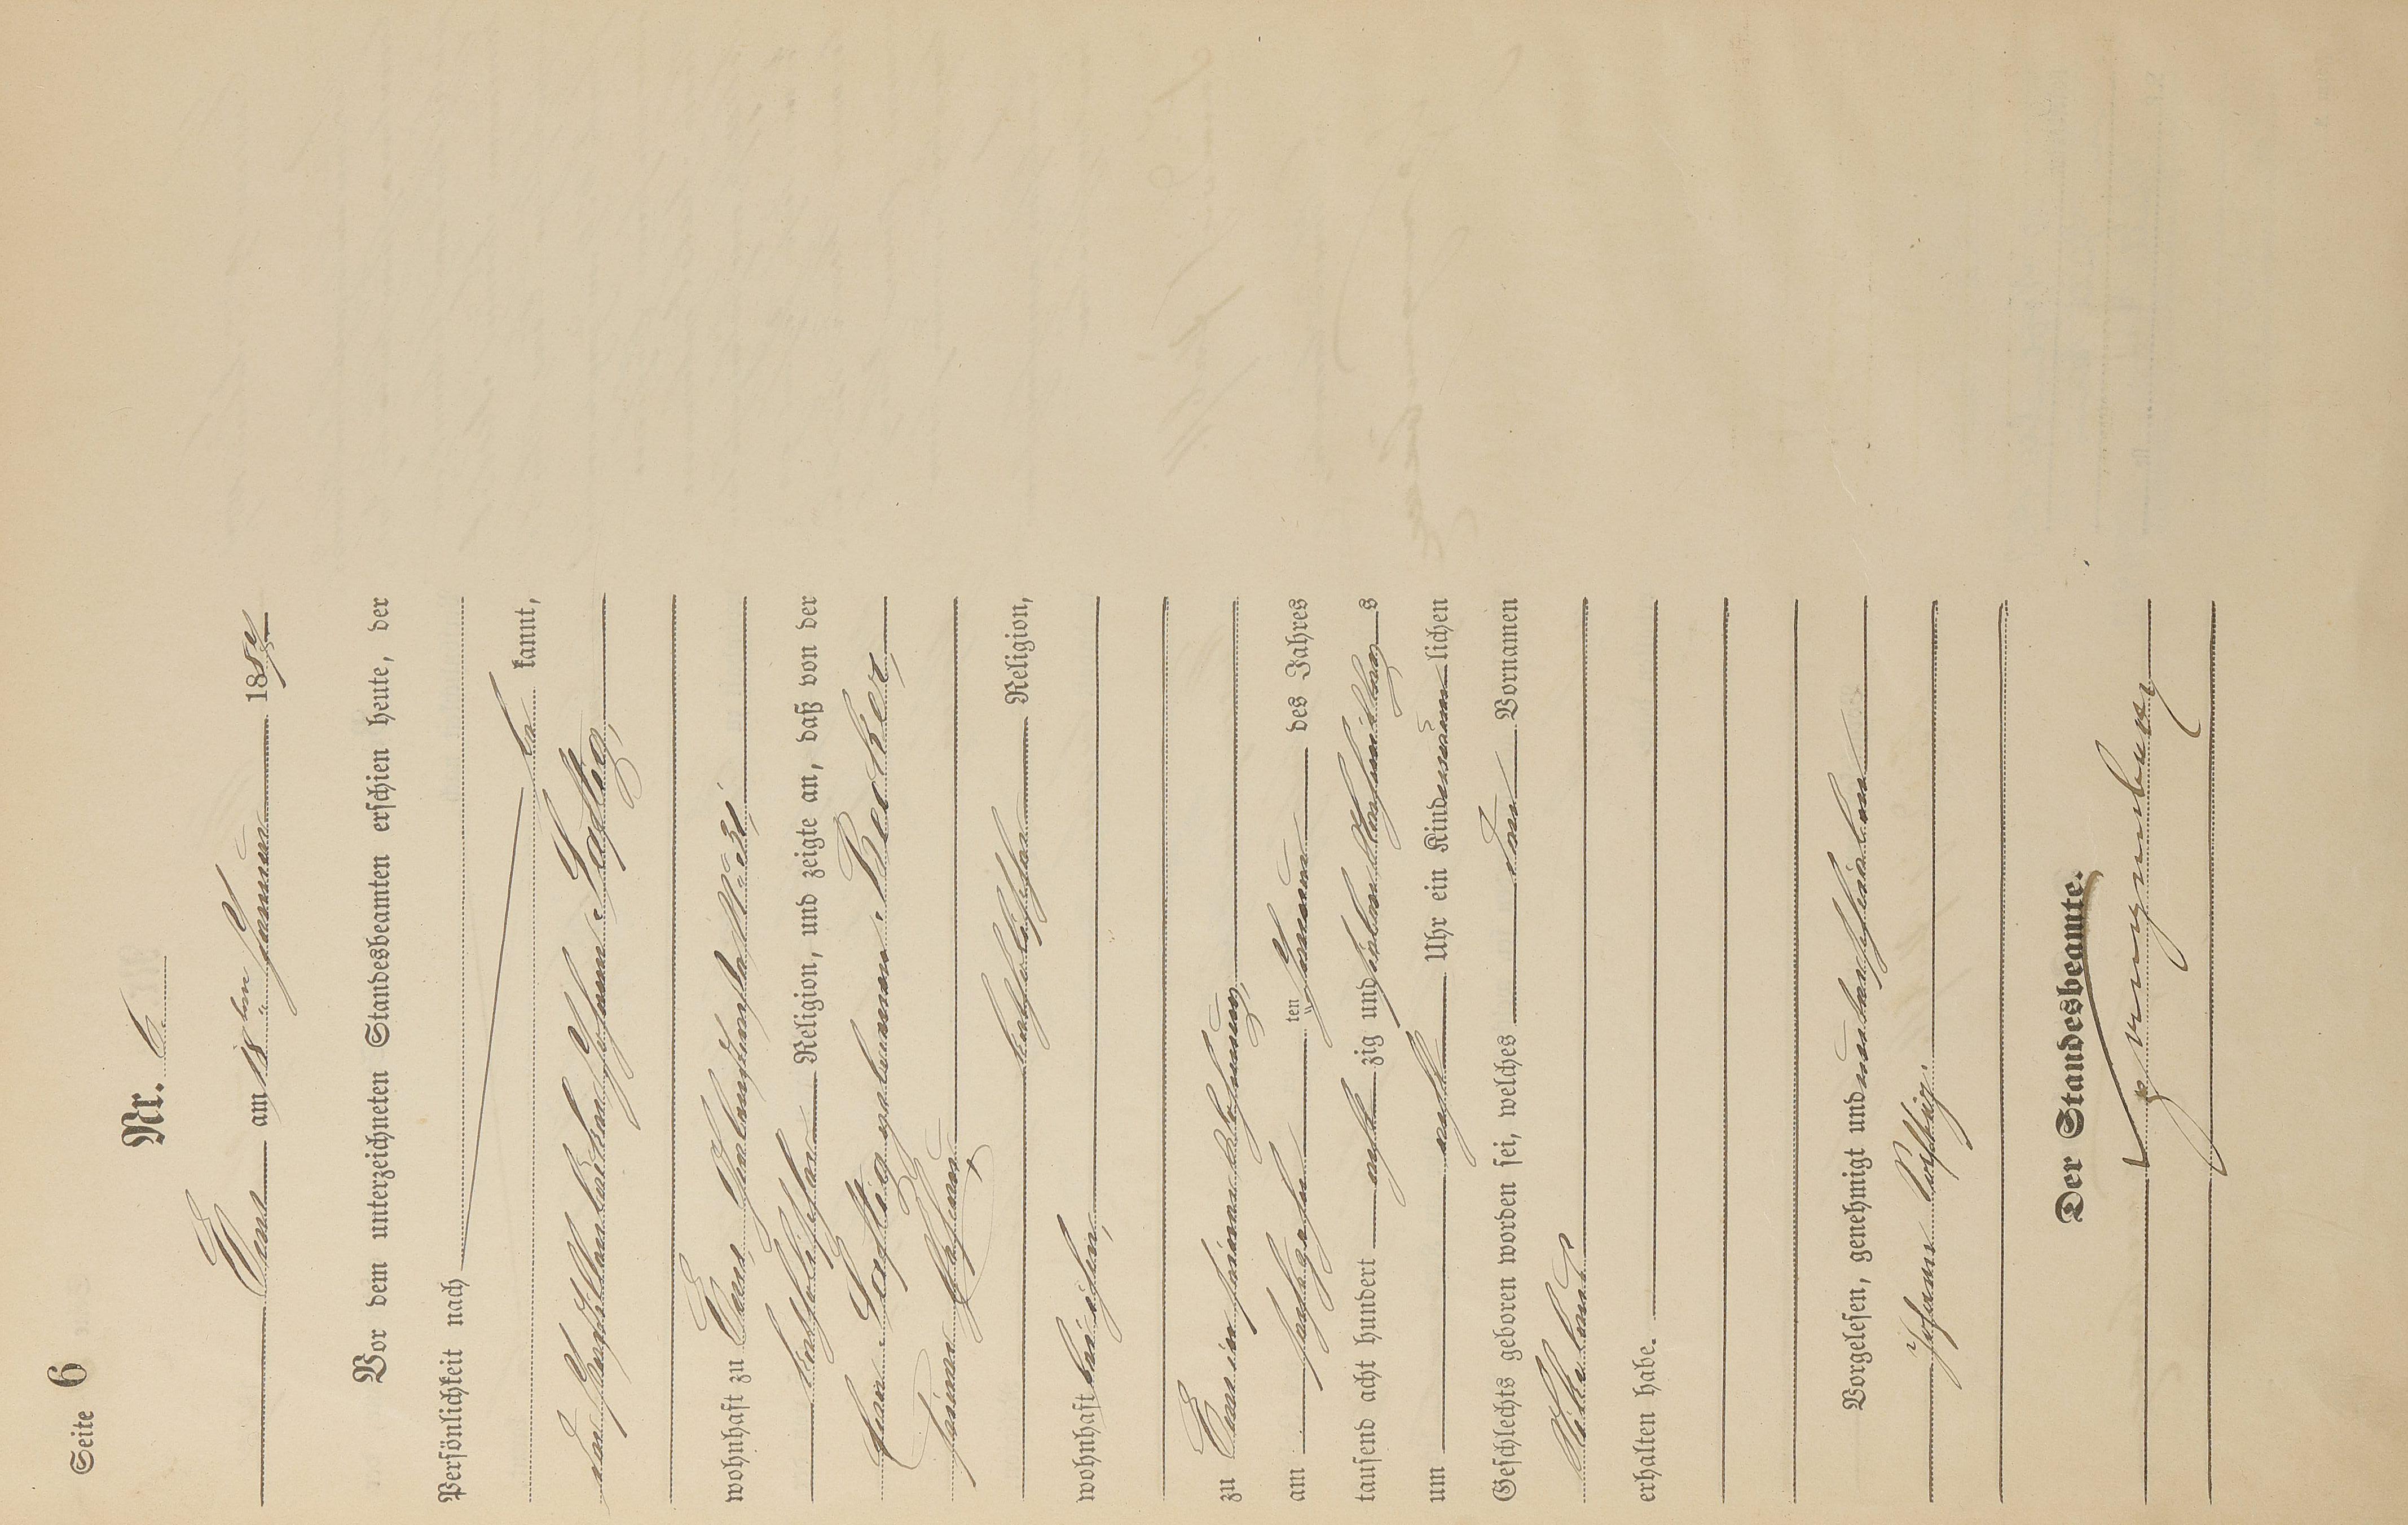 Seite 6
Nr. 6
Ems am 18ten Januar 188
Vor dem unterzeichneten Standesbeamten erschien heute, der
Persönlichkeit nach
be kannt,
der Johann
wohnhaft zu Ems, No 31,
katholischer Religion, und zeigte an, daß von der
geborenen Becker,
seiner Ehefrau
katholischer Religion,
wohnhaft bei ihm,
zu Ems in seiner Wohnung,
am fünfzehnten Januar des Jahres
tausend acht hundert acht zig und sieben Nachmittags
um acht Uhr ein Kind männlichen
Geschlechts geboren worden sei, welches den Vornamen
erhalten habe.
Vorgelesen, genehmigt und unterschrieben
Johann
Der Standesbeamte.